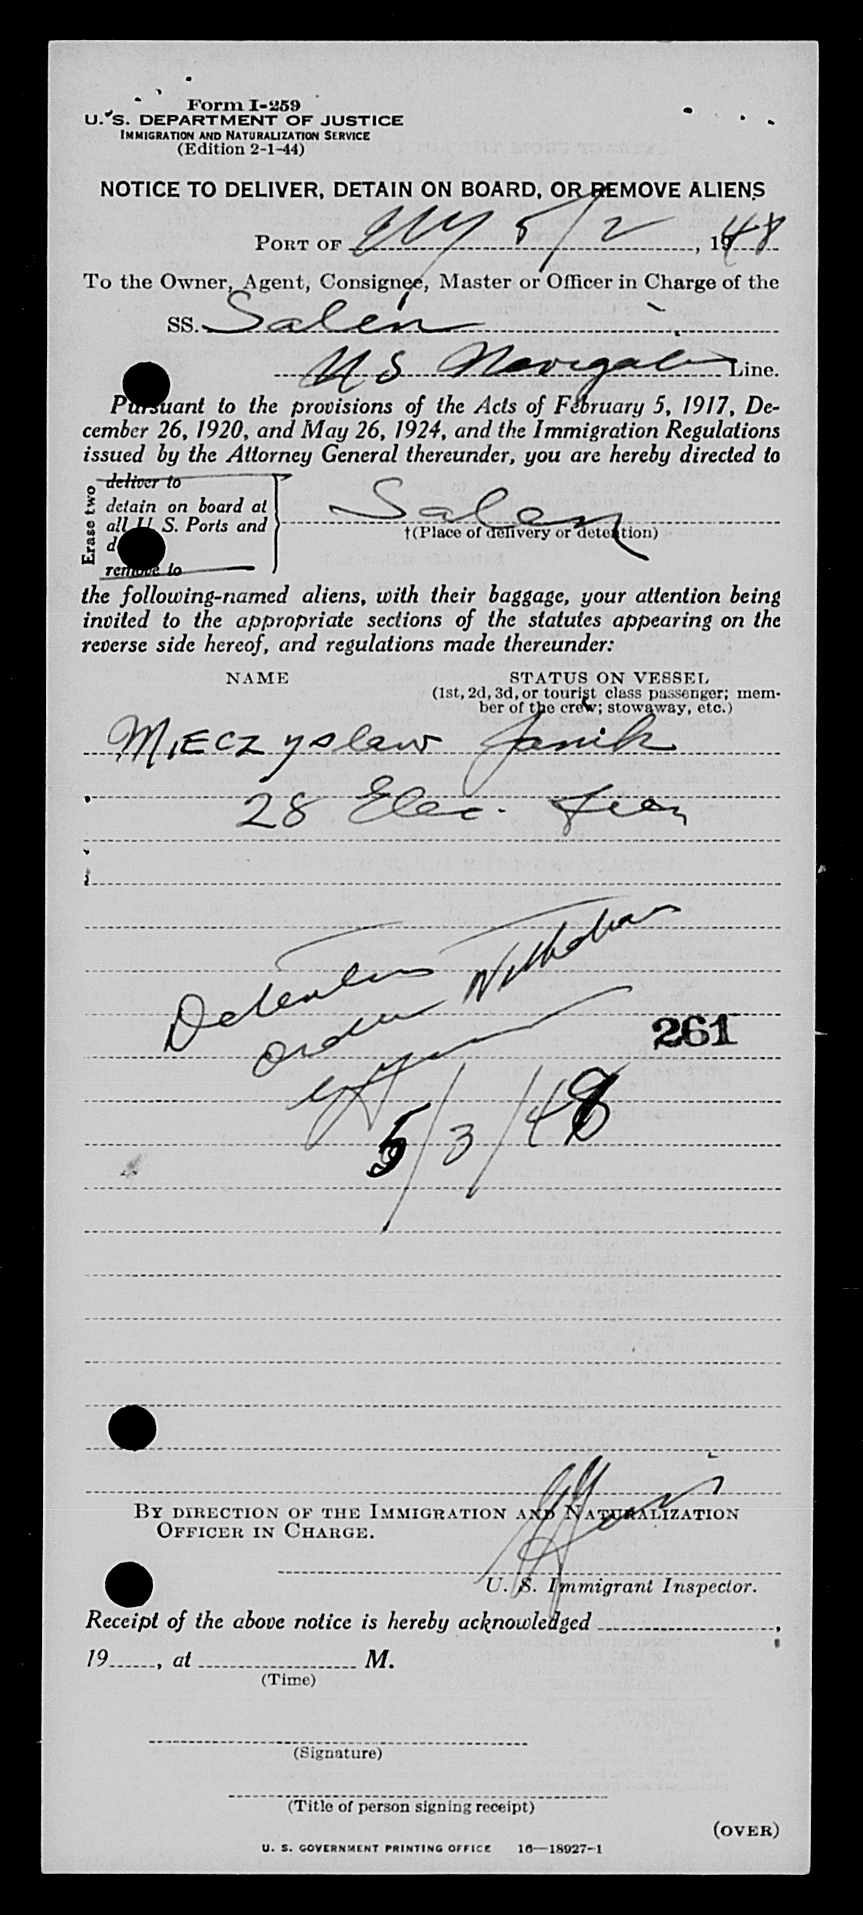 Form I-259
U. S. DEPARTMENT OF JUSTICE
IMMIGRATION AND NATURALIZATION SERVICE
(Edition 2-1-44)
NOTICE TO DELIVER, DETAIN ON BOARD, OR REMOVE ALIENS
PORT OF NY 5/2, 1948
To the Owner, Agent, Consignee, Master or Officer in Charge of the
SS. Salen
US Navigation Line.
Pursuant to the provisions of the Acts of February 5, 1917, De-
cember 26, 1920, and May 26, 1924, and the Immigration Regulations
issued by the Attorney General thereunder, you are hereby directed to
Erase two
deliver to
detain on board at
all U. S. Ports and
remove to
Salen
†(Place of delivery or detention)
the following-named aliens, with their baggage, your attention being
invited to the appropriate sections of the statutes appearing on the
reverse side hereof, and regulations made thereunder:
NAME STATUS ON VESSEL
(1st, 2d, 3d, or tourist class passenger; mem-
ber of the crew; stowaway, etc.)
Mieczyslaw Janik
28 Elec.
Detention
Order Withdrawn
261
5/3/48
BY DIRECTION OF THE IMMIGRATION AND NATURALIZATION
OFFICER IN CHARGE.
U. S. Immigrant Inspector.
Receipt of the above notice is hereby acknowledged ,
19 , at M.
(Time)
(Signature)
(Title of person signing receipt)
(OVER)
U. S. GOVERNMENT PRINTING OFFICE 16—18927-1